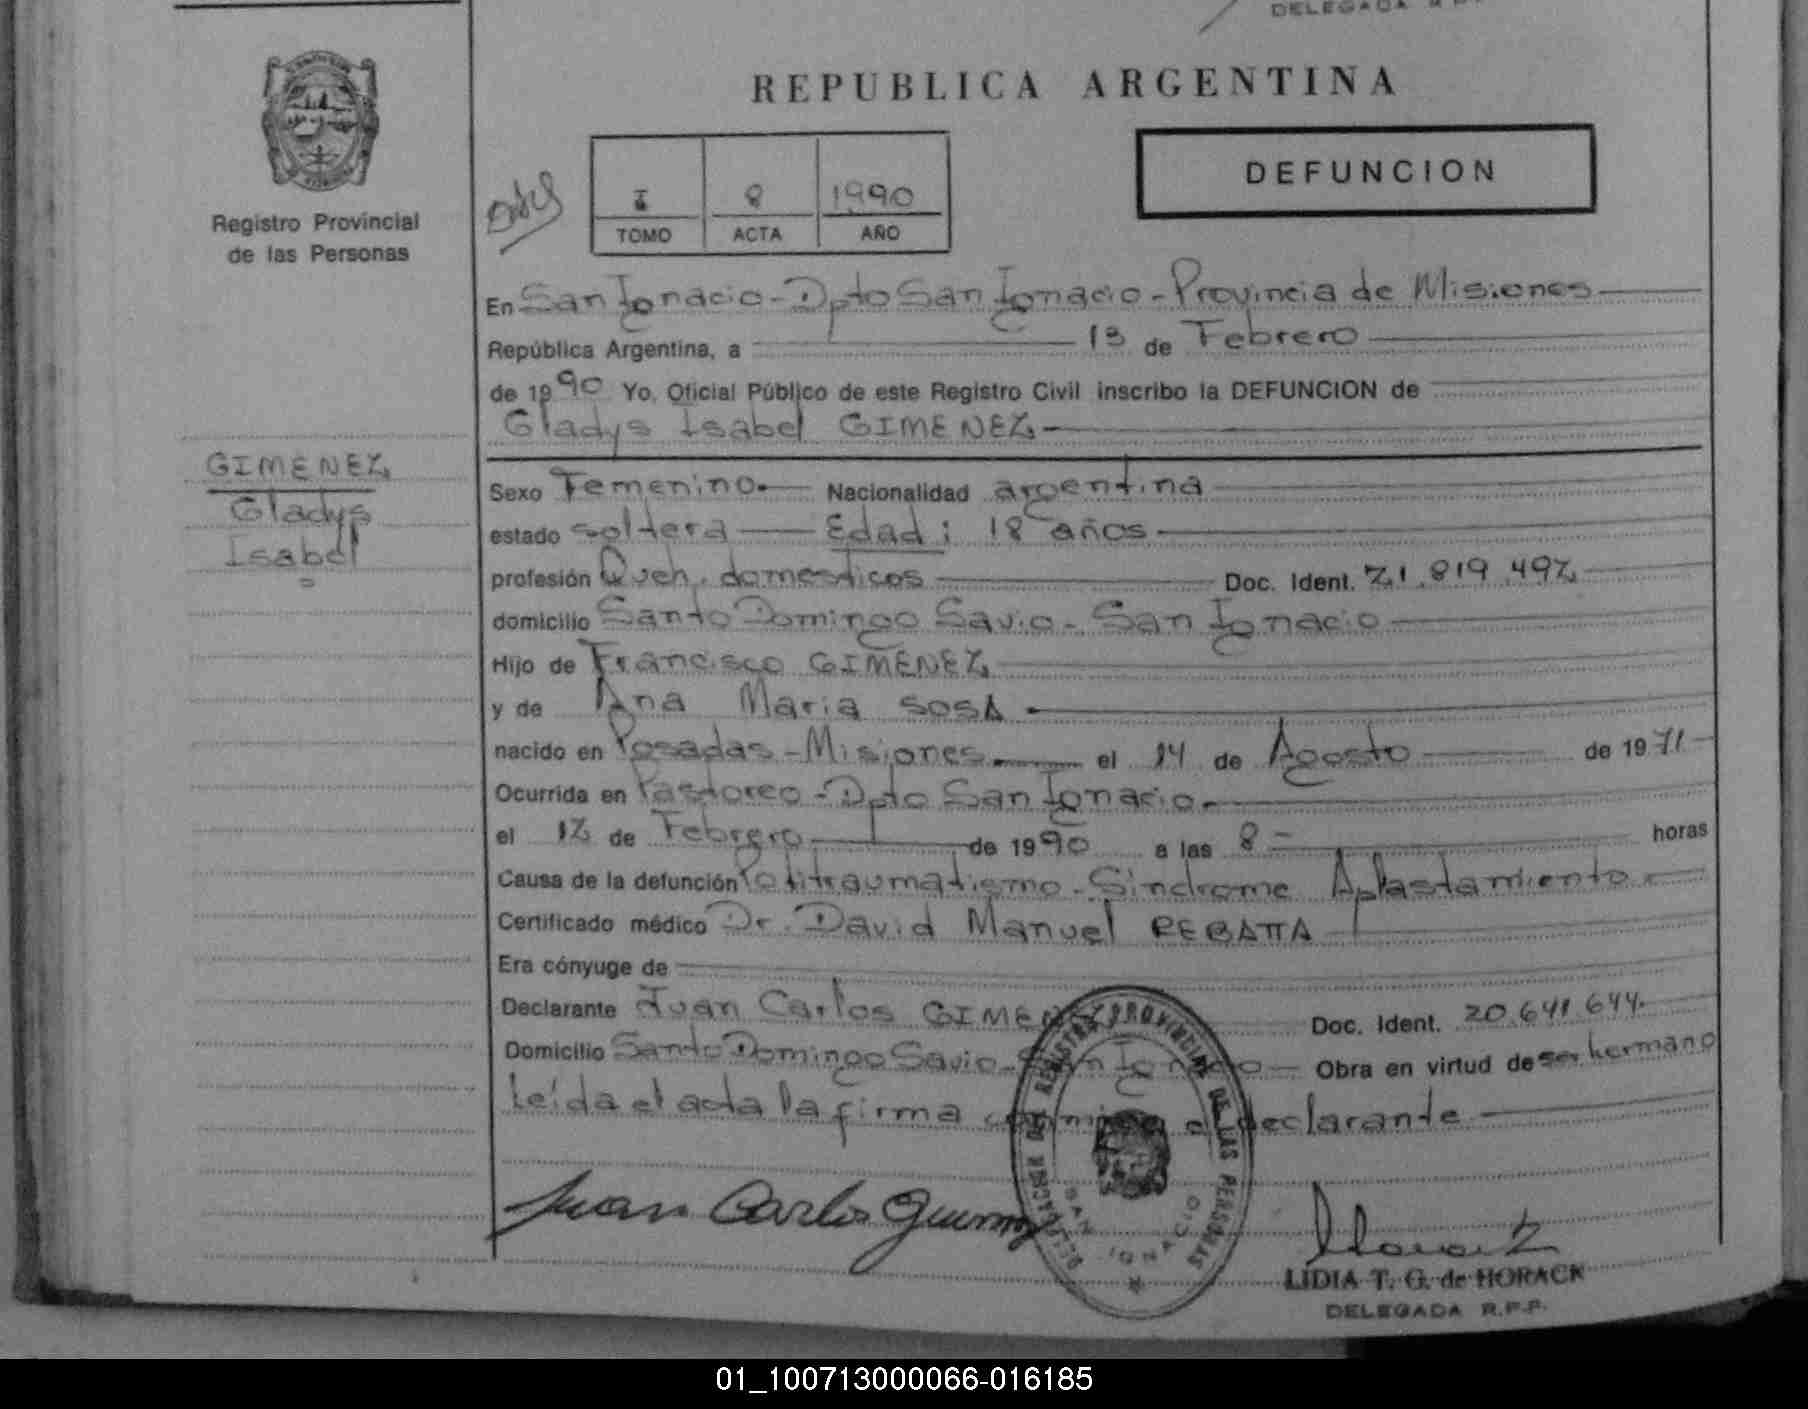 DELEGADA R.P.P.
REPUBLICA ARGENTINA
DEFUNCION
I 8 1990
TOMO ACTA AÑO
Registro Provincial
de las Personas
En San Ignacio - Dpto San Ignacio - Provincia de Misiones
República Argentina, a 13 de Febrero
de 1990 Yo, Oficial Público de este Registro Civil inscribo la DEFUNCION de
Gladys Isabel GIMENEZ
GIMENEZ
Gladys
Isabel
Sexo Femenino.- Nacionalidad argentina
estado soltera Edad: 18 años
profesión Queh. domesticos Doc. Ident. 21.819.492
domicilio Santo Domingo Savio - San Ignacio
Hijo de Francisco GIMENEZ
y de Ana Maria SOSA
nacido en Posadas - Misiones. el 14 de Agosto de 1971
Ocurrida en Pastoreo - Dpto San Ignacio.
el 12 de Febrero de 1990 a las 8 - horas
Causa de la defunción Politraumatismo - Sindrome Aplastamiento
Certificado médico Dr. David Manuel REBATTA
Era cónyuge de
Declarante Juan Carlos GIMENEZ Doc. Ident. 20.641.644.
Domicilio Santo Domingo Savio - San Ignacio Obra en virtud de ser hermano
Leída el acta la firma conmigo el declarante
Juan Carlos Gimenez
DELEGACION DEL REGISTRO PROVINCIAL DE LAS PERSONAS
SAN IGNACIO
LIDIA T. G. de HORACK
DELEGADA R.P.P.
01_100713000066-016185